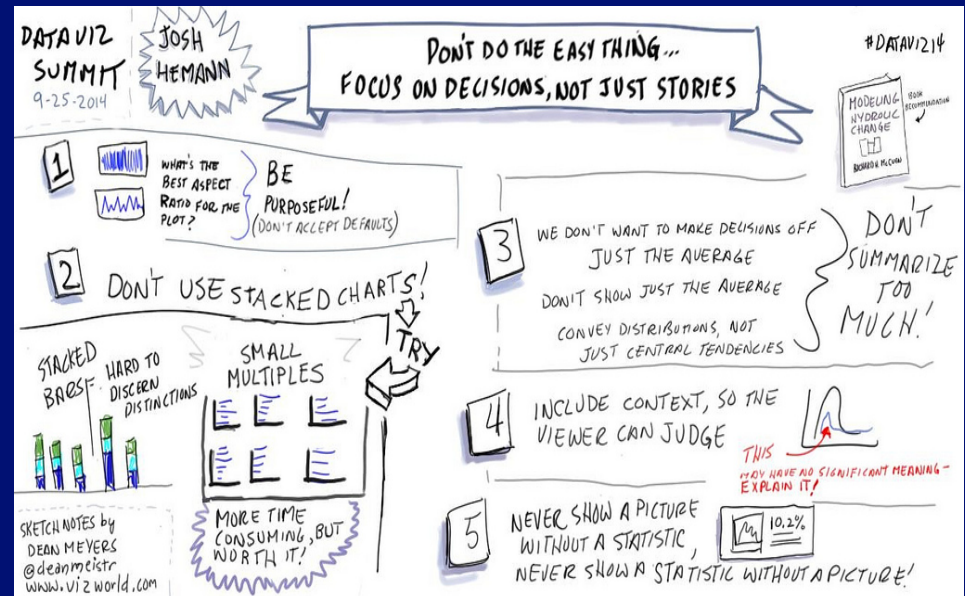 DATA VIZ
SUMMIT
9-25-2014
JOSH
HEMANN
DON'T DO THE EASY THING...
FOCUS ON DECISIONS, NOT JUST STORIES
#DATAVIZ14
MODELING
HYDROLIC
CHANGE
RICHARD H. McCUEN
BOOK
RECOMMENDATION
1
WHAT'S THE
BEST ASPECT
RATIO FOR THE
PLOT?
BE
PURPOSEFUL!
(DON'T ACCEPT DEFAULTS)
2
DON'T USE STACKED CHARTS!
TRY
STACKED
BARS
HARD TO
DISCERN
DISTINCTIONS
SMALL
MULTIPLES
MORE TIME
CONSUMING, BUT
WORTH IT!
SKETCHNOTES by
DEAN MEYERS
@deanmeistr
www.vizworld.com
3
WE DON'T WANT TO MAKE DECISIONS OFF
JUST THE AVERAGE
DON'T SHOW JUST THE AVERAGE
CONVEY DISTRIBUTIONS, NOT
JUST CENTRAL TENDENCIES
DON'T
SUMMARIZE
TOO
MUCH!
4
INCLUDE CONTEXT, SO THE
VIEWER CAN JUDGE
THIS
MAY HAVE NO SIGNIFICANT MEANING-
EXPLAIN IT!
5
NEVER SHOW A PICTURE
WITHOUT A STATISTIC,
NEVER SHOW A STATISTIC WITHOUT A PICTURE!
10.2%